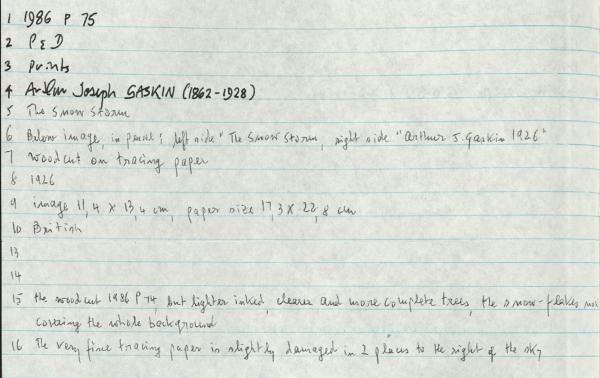 1 1986 P 75
2 P & D
3 prints
4 Arthur Joseph GASKIN (1862-1928)
5 The Snow Storm
6 Below image, in pencil; left side "The Snow Storm, right side "Arthur J. Gaskin 1926"
7 woodcut on tracing paper
8 1926
9 image 11,4 x 13,4 cm, paper size 17,3 x 22,8 cm
10 British
13
14
15 the woodcut 1986 P 74, but lighter inked, clearer and more complete trees, the snow-flakes
covering the whole background
16 The very fine tracing paper is slightly damaged in 2 places to the right of the sky